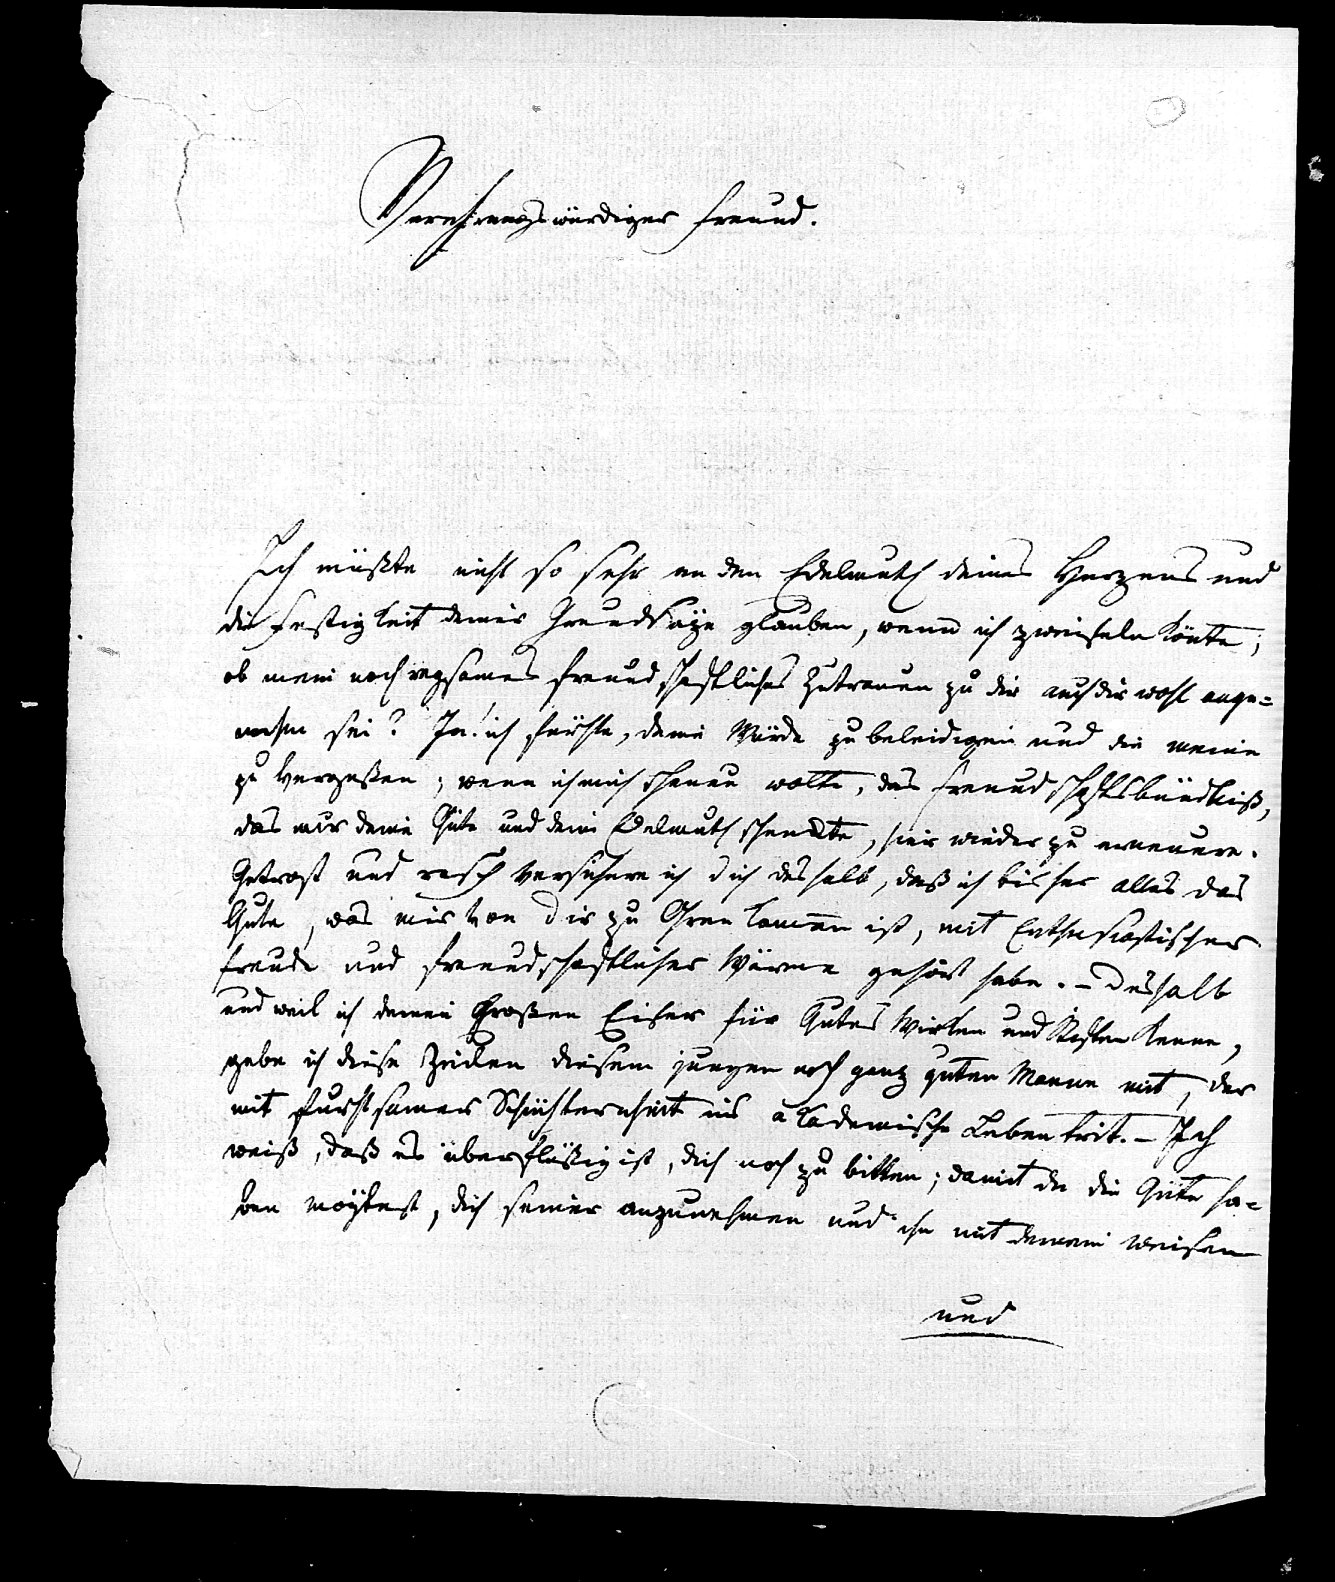 Verehrungswürdiger Freund.
Ich müßte nicht so sehr an den Edelmuth deines Herzens und
die Festigkeit deiner Grundsäze glauben, wenn ich zweifeln könte;
ob mein noch regsames freundschaftliches Zutrauen zu dir auch dir wohl ange-
nehm sei? Ja! ich fürchte, deine Würde zu beleidigen und die meine
zu vergeßen; wenn ich mich scheuen wolte, das Freundschaftsbündniß,
das mir deine Güte und dein Edelmuth schenckte, hier wieder zu erneuern.
Getrost und rasch versichere ich dich deshalb, daß ich bisher alles das
Gute, was mir von dir zu Ohren kommen ist, mit Enthusiastischer
Freude und freundschaftlicher Wärme gehört habe. – Deshalb
und weil ich deinen Großen Eifer für Gutes Wirken und kenne,
gebe ich diese Zeilen diesem jungen noch ganz guten Manne mit, der
mit furchtsamer Schüchternheit ins akademische Leben trit. – Ich
weiß, daß es überflüßig ist, dich noch zu bitten; damit du die Güte ha-
ben mögtest, dich seiner anzunehmen und ihn mit deinem weisen
und